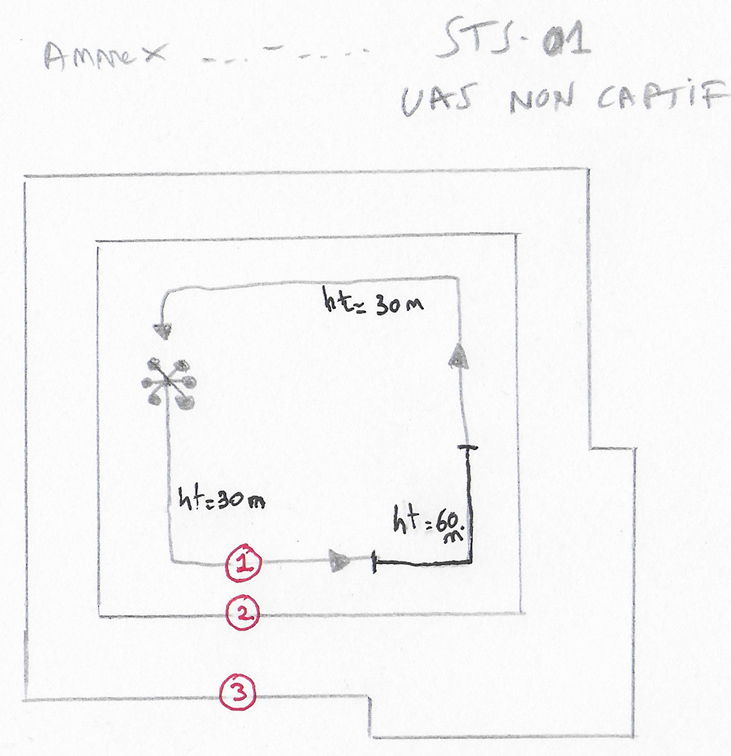 Annex ........ STS-01
UAS NON CAPTIF
ht= 30m
ht=30m
ht=60.
m
1
2
3